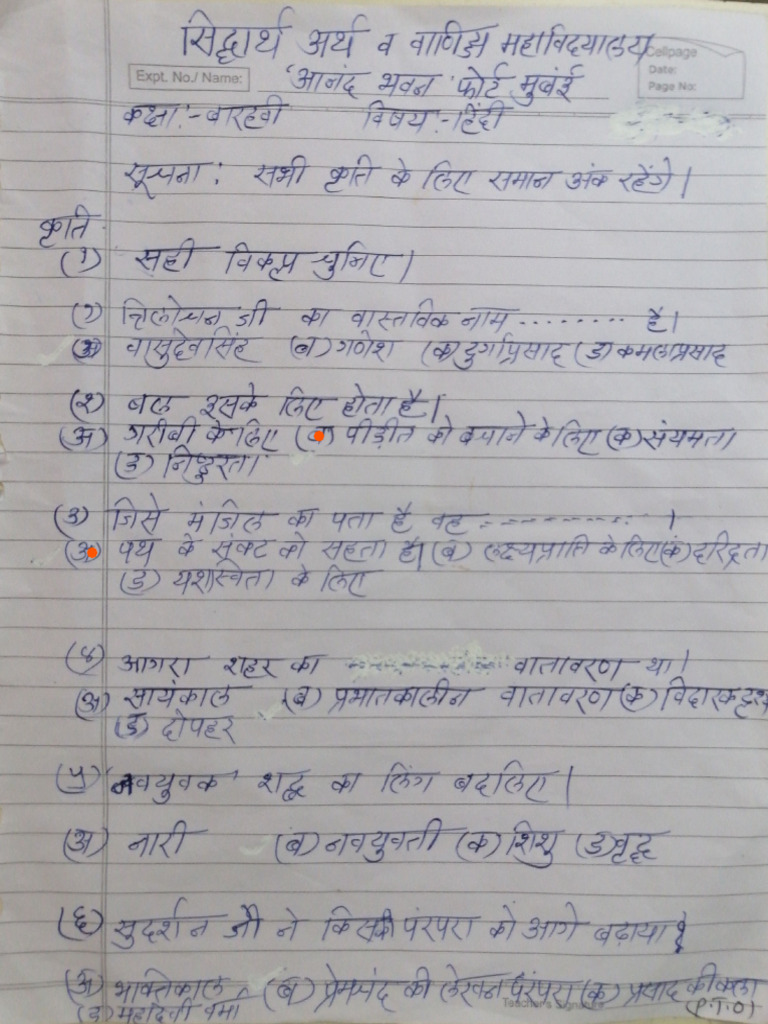 सिद्धार्थ अर्थ व वाणिज्य महाविदयालय
Cellpage
Expt. No./ Name:
'आनंद भवन' फोर्ट मुबंई
Date:
Page No:
कक्षा :- बारहवी विषय :- हिंदी
सूचना : सभी कृति के लिए समान अंक रहेंगे।
कृति
(१) सही विकल्प चुनिए।
(१) त्रिलोचन जी का वास्तविक नाम ........ है।
(अ) वासुदेवसिंह (ब) गणेश (क) दुर्गाप्रसाद (ड) कमलाप्रसाद
(२) बल इसके लिए होता है।
(अ) गरीबी के लिए (ब) पीड़ीत को बचाने के लिए (क) संयमता
(ड) निष्ठुरता
(३) जिसे मंजिल का पता है वह ---------- ।
(अ) पथ के संकट को सहता है। (ब) लक्ष्यप्राप्ति के लिए (क) दरिद्रता
(ड) यशस्विता के लिए
(४) आगरा शहर का वातावरण था।
(अ) सायंकाल (ब) प्रभातकालीन वातावरण (क) विदारक दृश्य
(ड) दोपहर
(५) नवयुवक' शद्ब का लिंग बदलिए।
(अ) नारी (ब) नवयुवती (क) शिशु (ड) वृद्ध
(६) सुदर्शन जी ने किसकी पंरपरा को आगे बढ़ाया है
(अ) भाक्तिकाल (ब) प्रेमचंद की लेखन पंरपरा (क) प्रसाद की कला
(ड) महादेवी वर्मा
Teacher's Signature
(P.T.O)